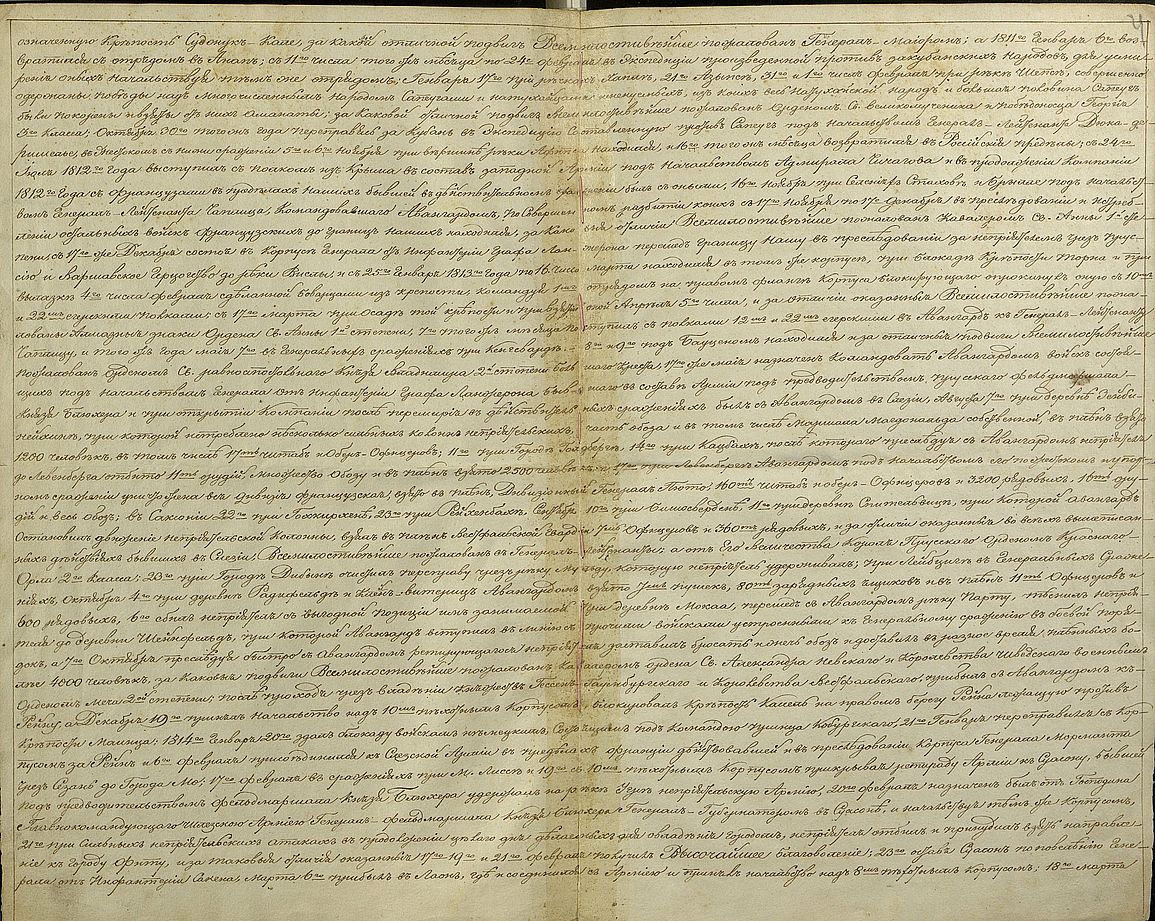 означенную Крѣпость Суджукъ-Кале, за какой отличной подвигъ Всемилостивѣйше пожалованъ Генералъ-Маіоромъ; а 1811го Генваря 6го воз-
вратился съ отрядомъ въ Анапъ; съ 11го числа того жъ мѣсяца по 24е февраля въ Экспедиціи произведенной противъ закубанскихъ Народовъ, для усми-
реніе оныхъ начальствуя тѣмъ же отрядомъ; Генваря 17го при рѣкахъ 21го 31го и 1го числъ февраля при рѣкѣ совершенно
одержаны побѣды надъ многочисленнымъ народомъ и натухайцами изъ коихъ весь Натухайской народъ и большая половина
были покорены и взяты отъ нихъ аманаты; за каковой отличной подвигъ Всемилостивѣйше пожалованъ Орденомъ Св. великомученика и побѣдоносца Георгія
3го класса; Октября 30го того жъ года переправясь за Кубань въ Экспедицію составленную противъ подъ начальствомъ Генералъ-Лейтенанта Дюка-де-
ришелье, въ жестокомъ съ ними сраженіи 5го и 6го Ноября при вершинѣ рѣки находился, и 16го того жъ мѣсяца возвратился въ Россійскіе предѣлы; съ 24го
Іюля 1812го Года выступилъ съ полкомъ изъ Крыма въ составъ западной Арміи подъ Начальствомъ Адмирала Чичагова и въ продолженіи Компаніи
1812го Года съ Французами въ предѣлахъ нашихъ бывшей въ дѣйствительномъ сраженіи былъ съ оными, 16го Ноября при Селеніяхъ Стаховѣ и Брыляхъ подъ начальст-
вомъ Генералъ-Лейтенанта Чаплица, Командовавшаго Авангардомъ, по Совершенномъ разбитіи коихъ съ 17го Ноября по 17е Декабря въ преслѣдованіи и истреб-
леніи остальныхъ войскъ французскихъ до границъ нашихъ находился, за каковыя отличіи Всемилостивѣйше пожалованъ Кавалеромъ Св. Анны 1й сте-
пени; съ 17го же Декабря состоя въ Корпусѣ Генерала отъ Инфантеріи Графа Ланжерона перешедъ границу нашу въ преслѣдованіи за непріятелемъ чрезъ Прус-
сію и Варшавское Герцогство до рѣки Вислы, и съ 25го Генваря 1813го Года по 16е число марта находился въ томъ же корпусѣ, при блокадѣ крѣпости Торна и при
вылазкѣ 4го числа февраля сдѣланной баварцами изъ крепости, командуя отрядомъ на правомъ флангѣ корпуса блокирующаго опрокинулъ въ оную съ 10мъ
и 22мъ егерскими полками; съ 17го марта при осадѣ той крѣпости и при взятіи оной Апрѣля 5го числа, и за отличіи оказанныя Всемилостивѣйше пожа-
лованы Алмазные знаки Ордена Св. Анны 1й степени, 7го того жъ мѣсяца поступилъ съ полками 12мъ и 22мъ егерскими въ Авангардъ къ Генералъ-Лейтенанту
Чаплицу, и того жъ Года маія 7го въ Генеральныхъ сраженіяхъ при Кенигсвартѣ, 8го и 9го подъ Бауценомъ находился и за отличныя подвиги Всемилостивѣйше
пожалованъ Орденомъ Св. равноапостольнаго Князя Владимира 2й степени большаго Креста, 17го же маія назначенъ командовать Авангардомъ войскъ состоя-
щихъ подъ начальствомъ Генерала отъ Инфантеріи Графа Ланжерона бывшаго въ составѣ Арміи подъ предводительствомъ, прусскаго фельдмаршала
Князя Блюхера и при открытіи Компаніи послѣ перемирія въ дѣйствительныхъ сраженіяхъ былъ съ Авангардомъ въ Силезіи, Августа 7го при деревнѣ Зибен-
нейхинъ, при которой истреблено нѣсколько сильныхъ колоннъ непріятельскихъ, часть обоза и въ томъ числѣ Маршала Магдональда собственной, въ плѣнъ взято
1200 человѣкъ, въ томъ числѣ 17ть Штабъ и Оберъ-Офицеровъ; 11го при Городѣ Голдбергѣ, 14го при Кацбахѣ, послѣ котораго преслѣдуя съ Авангардомъ непріятеля
до Левенберга отбито 11ть орудій, множество Обозу и въ плѣнъ взято 2500 человѣкъ и 17го при Левенбергѣ Авангардомъ подъ начальствомъ его по жестокомъ и упор-
номъ сраженіи уничтожена вся дивизія французская, взято въ плѣнъ, Дивизіонный Генералъ Пюто, 160ть Штабъ и оберъ-Офицеровъ и 3200 рядовыхъ, 16ть ору-
дій и весь обозъ; въ Саксоніи 22го при 23го при Рейхенбахѣ, Сентября 10го при Бишофсвердѣ, 11го при деревнѣ при которой авангардъ
Остановилъ движеніе непріятельской Колонны, взялъ въ плѣнъ Вестфальской Гвардіи 7мь Офицеровъ и 360ть рядовыхъ, и за отличіи оказанныя во всѣхъ вышеписан-
ныхъ дѣйствіяхъ бывшихъ въ Силезіи, Всемилостивѣйше пожалованъ въ Генералъ-Лейтенанты; а отъ Его Величества Короля Прусскаго Орденомъ Краснаго
Орла 2го класса; 23го при Городѣ Дибинъ очистилъ переправу чрезъ рѣку Мульду, которую непріятель удерживалъ; при Лейбцигѣ въ Генеральныхъ Сраже-
ніяхъ, Октября 4го при деревнѣ Радифельдъ и Клейн-витерицъ Авангардомъ взято пушекъ, 80ть зарядныхъ ящиковъ и въ плѣнъ 11ть Офицеровъ и
600 рядовыхъ, 6го сбилъ непріятеля съ выгодной позиціи имъ занимаемой при деревнѣ Мокаа, перешедъ съ Авангардомъ рѣку Парту, тѣснилъ непрія-
теля до деревни Шейнфельдъ, при которой Авангардъ вступилъ въ линію съ прочими войсками устроенными къ Генеральному сраженію въ боевой поря-
докъ, а 7го Октября преслѣдуя быстро съ Авангардомъ ретирующагося непріятеля заставилъ бросать и жечь обозъ и доставилъ въ разное время, плѣнныхъ бо-
лѣе 4000 человѣкъ, за каковыя подвиги Всемилостивѣйше пожалованъ Кавалеромъ ордена Св. Александра Невскаго и Королевства Шведскаго военнымъ
Орденомъ Меча 2й степени, послѣ проходя чрезъ владѣніи княжествъ Гессенъ-Гамбургскаго и Королевства Вестфальскаго, прибылъ съ Авангардомъ къ
Рейну, а Декабря 19го принялъ начальство надъ 10мъ пѣхотнымъ Корпусомъ, блокировалъ крѣпость Кассель на правомъ берегу Рейна лежащую противъ
Крѣпости Маинца; 1814го Генваря 20го сдалъ блокаду войскамъ нѣмецкимъ, состоящимъ подъ командою принца Кобургскаго, 21го Генваря переправился съ кор-
пусомъ за Рейнъ и 6го февраля присоединился къ Силезской Арміи въ предѣлахъ Франціи дѣйствовавшей и въ преслѣдованіи корпуса Генерала Мармонта
чрезъ Сезань до Города Мо; 17го февраля въ сраженіяхъ при М. Лиси и 19го съ 10мъ пѣхотнымъ Корпусомъ прикрывая ретираду Арміи къ Суасону, бывшей
подъ предводительствомъ фельдмаршала Князя Блюхера удержалъ на рѣкѣ непріятельскую Армію, 20го февраля назначенъ былъ отъ Господина
Главнокомандующаго Силезскою Арміею Генералъ-фельдмаршала Князя Блюхера Генералъ-Губернаторомъ въ Суасонѣ, и начальствуя тѣмъ же корпусомъ,
21го при сильныхъ непріятельскихъ атакахъ въ продолженіи цѣлаго дня дѣлаемыхъ для овладѣнія городомъ, непріятеля отбилъ и принудилъ взять направле-
ніе къ городу Фиту, и за таковыя отличія оказанныя 17го 19го и 21го Февраля получилъ Высочайшее благоволеніе; 23го оставя Суасонъ по повелѣнію Гене-
рала отъ Инфантеріи Сакена, Марта 6го прибылъ въ Лаонъ, гдѣ и соединился съ Арміею и принялъ начальство надъ 8мъ пѣхотнымъ Корпусомъ, 18го марта